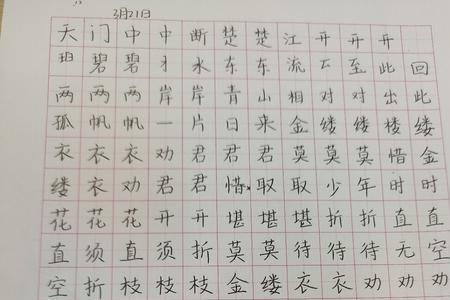 3月21日
天门中中断楚楚江开开开
碧碧水东东流至此回
两两两岸岸青山相对对出此
孤帆帆一片日来金缕缕楼缕
衣衣衣劝君君君莫莫莫惜金
缕衣劝君君惜取取少年时时
花花花开开堪堪堪折折直直
直须直须折莫莫待待待无空
空折枝枝枝金缕衣衣劝劝劝